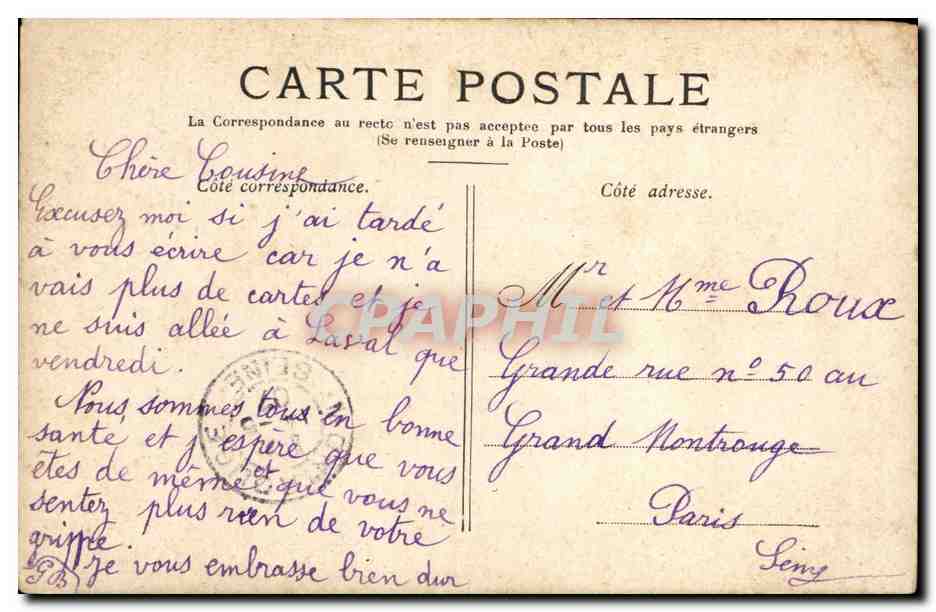 CARTE POSTALE
La Correspondance au recto n'est pas acceptee par tous les pays étrangers
(Se renseigner à la Poste)
Côté correspondance.
Chère Cousine
Excusez moi si j'ai tardé
à vous écrire car je n'a
vais plus de cartes et je
ne suis allée à Laval que
vendredi.
Nous sommes tous en bonne
santé et j'espère que vous
êtes de même et que vous ne
sentez plus rien de votre
grippe.
Je vous embrasse bien dur
GB
Côté adresse.
Mr et Mme Roux
Grande rue n° 50 au
Grand Montrouge
Paris
SEINE
CPAPHIL